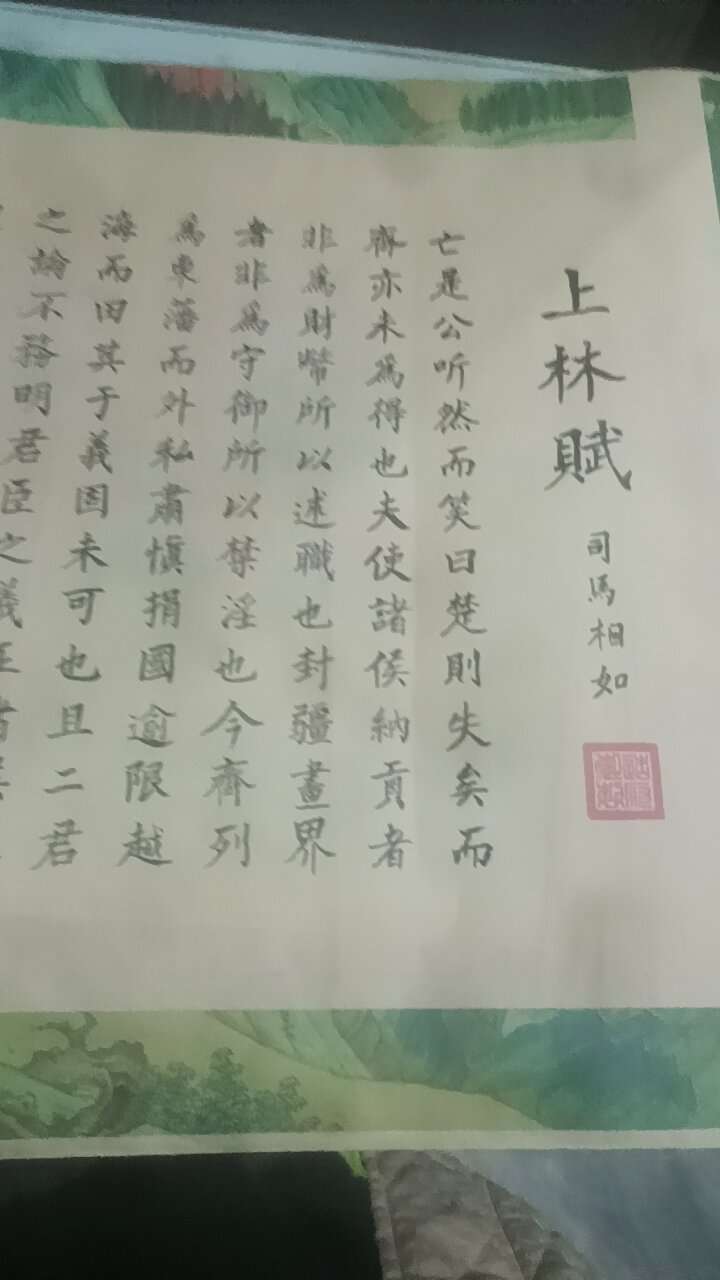 上林賦
司馬相如
亡是公听然而笑曰楚則失矣而
齊亦未爲得也夫使諸侯納貢者
非爲財幣所以述職也封疆畫界
者非爲守御所以禁淫也今齊列
爲東藩而外私肅慎捐國逾限越
海而田其于義固未可也且二君
之論不務明君臣之義